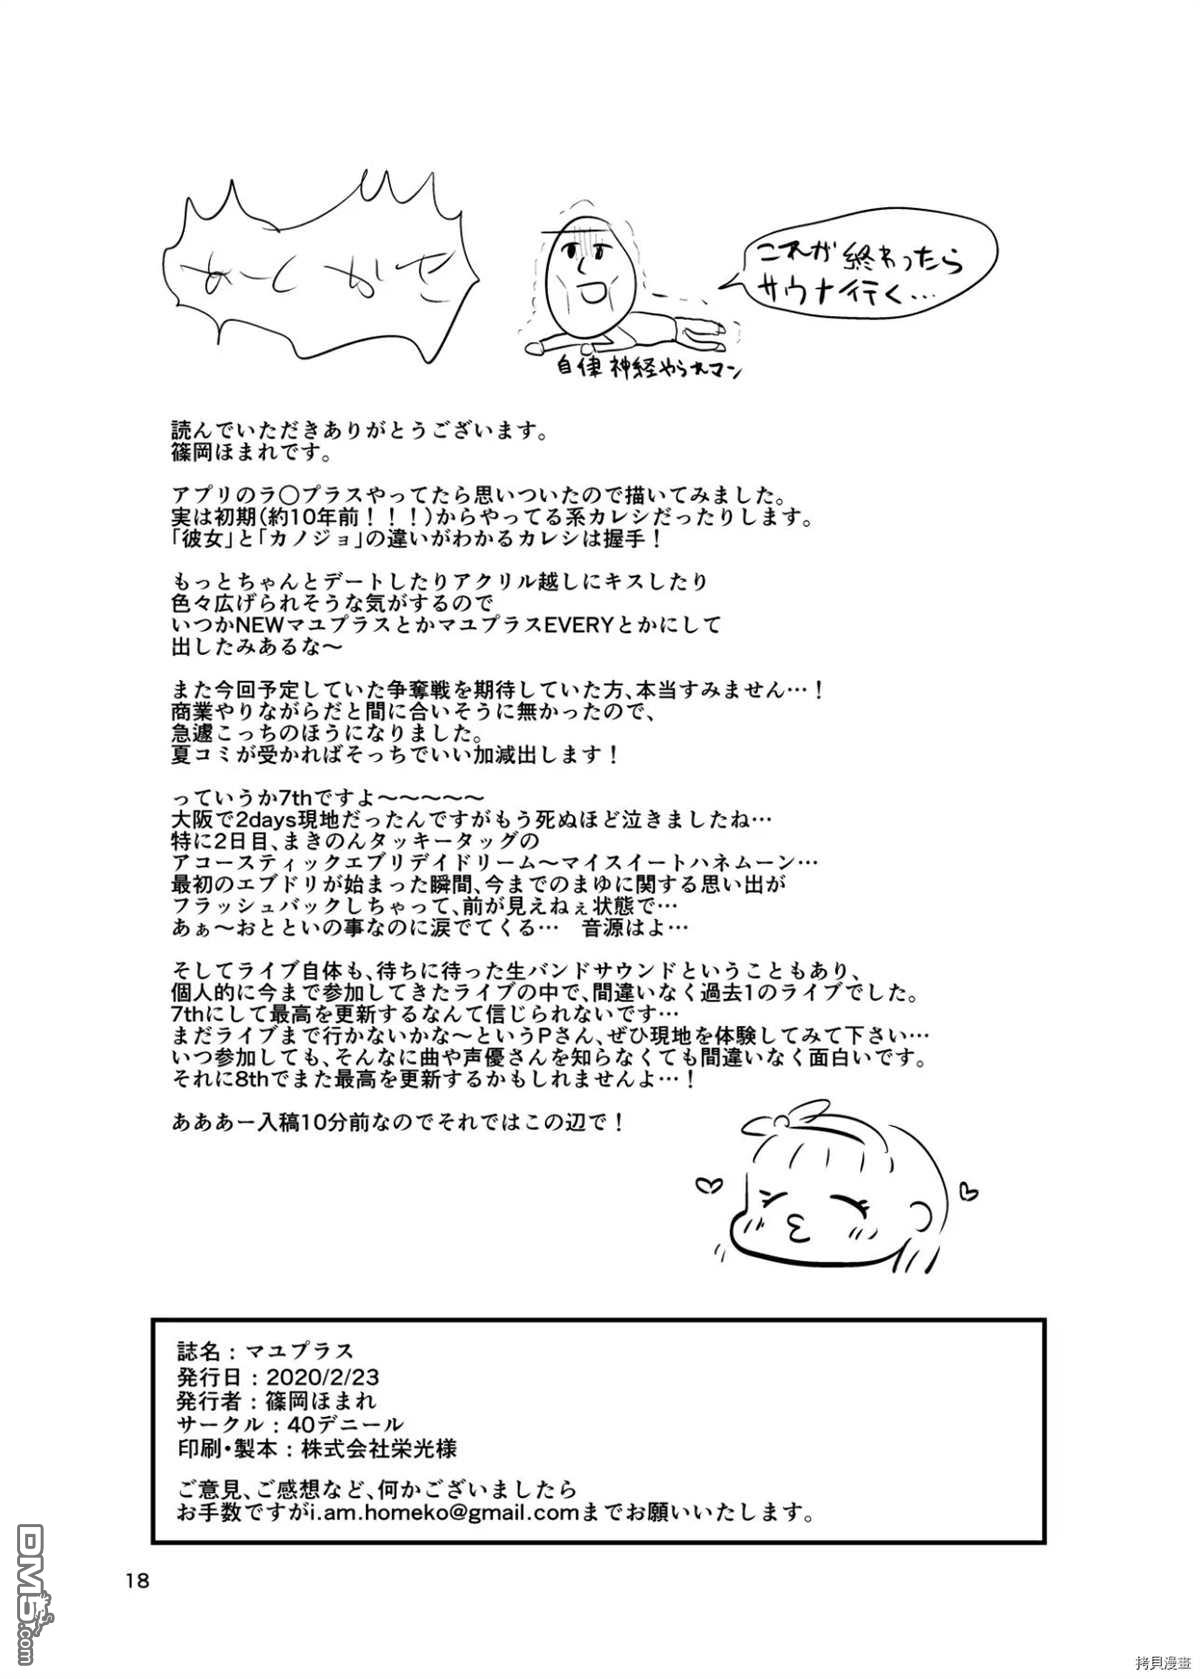 あとがき
これが終わったら
サウナ行く…
自律神経やられマン
読んでいただきありがとうございます。
篠岡ほまれです。
アプリのラ〇プラスやってたら思いついたので描いてみました。
実は初期(約10年前！！！)からやってる系カレシだったりします。
「彼女」と「カノジョ」の違いがわかるカレシは握手！
もっとちゃんとデートしたりアクリル越しにキスしたり
色々広げられそうな気がするので
いつかNEWマユプラスとかマユプラスEVERYとかにして
出したみあるな〜
また今回予定していた争奪戦を期待していた方、本当すみません…！
商業やりながらだと間に合いそうに無かったので、
急遽こっちのほうになりました。
夏コミが受かればそっちでいい加減出します！
っていうか7thですよ〜〜〜〜〜
大阪で2days現地だったんですがもう死ぬほど泣きましたね…
特に2日目、まきのんタッキータッグの
アコースティックエブリデイドリーム〜マイスイートハネムーン…
最初のエブドリが始まった瞬間、今までのまゆに関する思い出が
フラッシュバックしちゃって、前が見えねぇ状態で…
あぁ〜おとといの事なのに涙でてくる…　音源はよ…
そしてライブ自体も、待ちに待った生バンドサウンドということもあり、
個人的に今まで参加してきたライブの中で、間違いなく過去1のライブでした。
7thにして最高を更新するなんて信じられないです…
まだライブまで行かないかな〜というPさん、ぜひ現地を体験してみて下さい…
いつ参加しても、そんなに曲や声優さんを知らなくても間違いなく面白いです。
それに8thでまた最高を更新するかもしれませんよ…！
あああー入稿10分前なのでそれではこの辺で！
誌名：マユプラス
発行日：2020/2/23
発行者：篠岡ほまれ
サークル：40デニール
印刷・製本：株式会社栄光様
ご意見、ご感想など、何かございましたら
お手数ですがi.am.homeko@gmail.comまでお願いいたします。
18
DM5.com
拷貝漫畫